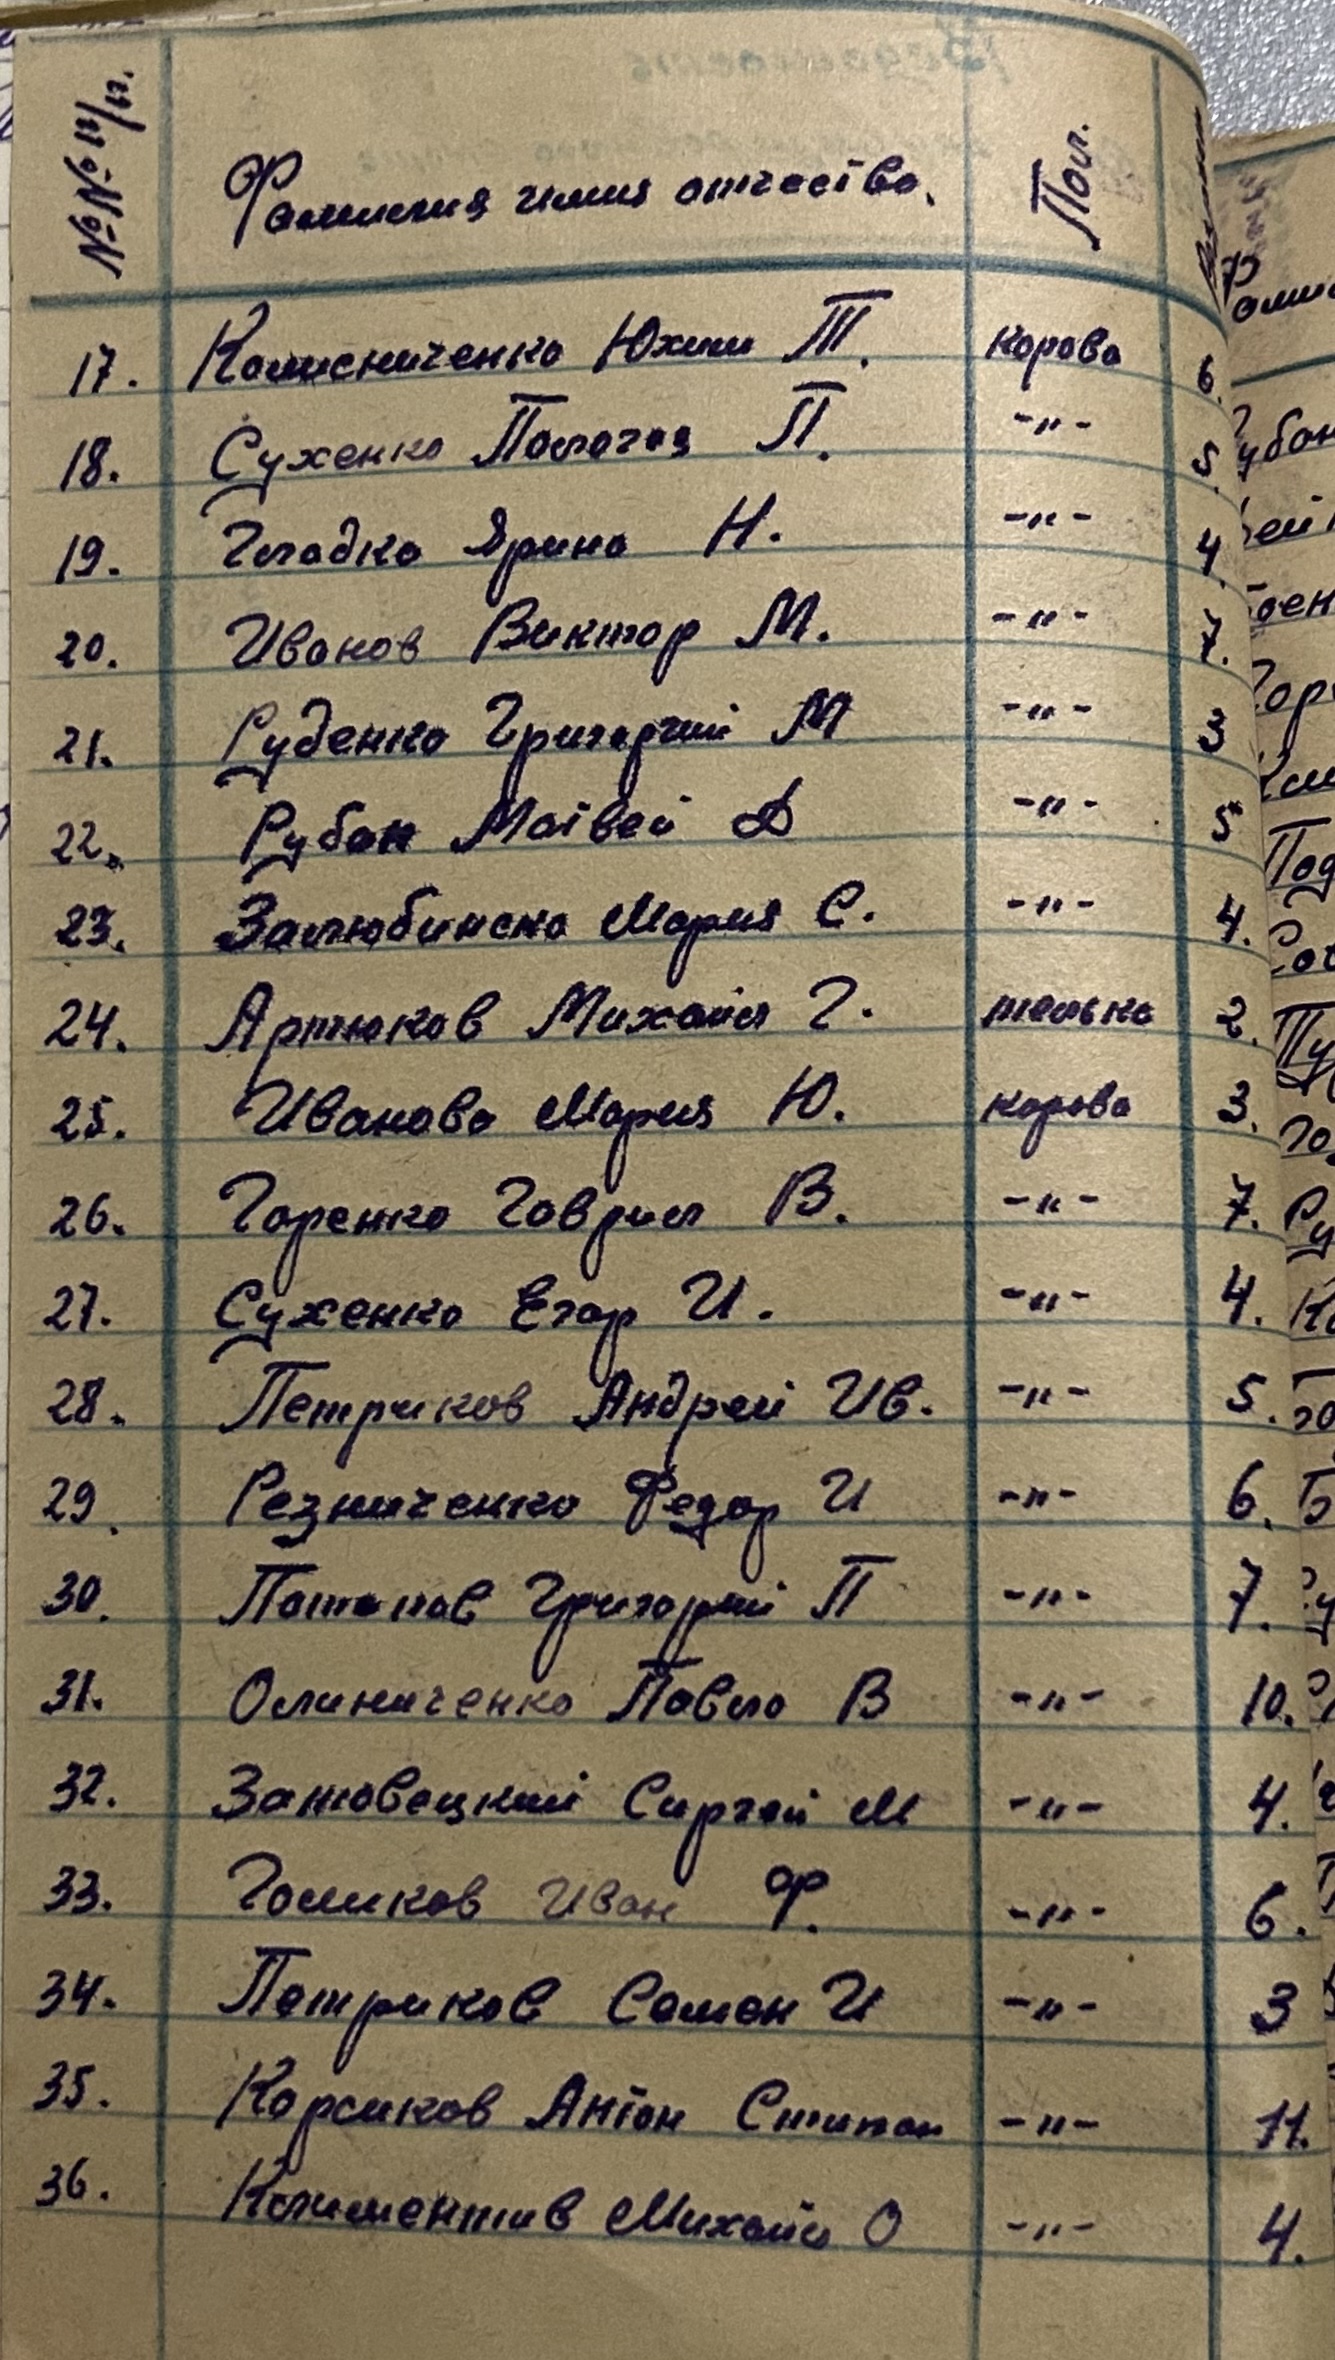 №№ п/п. Фамилия имия отчество. Пол.
17. Колисниченко Юхим Т. корова 6.
18. Сухенко Палагея П. -"- 5.
19. Гладка Ярина Н. -"- 4.
20. Иванов Виктор М. -"- 7.
21. Руденко Григорий М -"- 3
22. Рубан Матвей Д -"- 5
23. Залюбинска Мария С. -"- 4.
24. Артюков Михаил Г. телька 2.
25. Иванова Мария Ю. корова 3.
26. Горенко Гаврил В. -"- 7.
27. Сухенко Егор И. -"- 4.
28. Петриков Андрей Ив. -"- 5.
29. Резниченко Федор И -"- 6.
30. Потапов Григорий П -"- 7.
31. Олиниченко Павло В -"- 10.
32. Затовецкий Сиргей М -"- 4.
33. Голиков Иван Ф. -"- 6.
34. Петриков Семен И -"- 3
35. Корсиков Антон Стипан -"- 11.
36. Климентив Михаил О -"- 4.